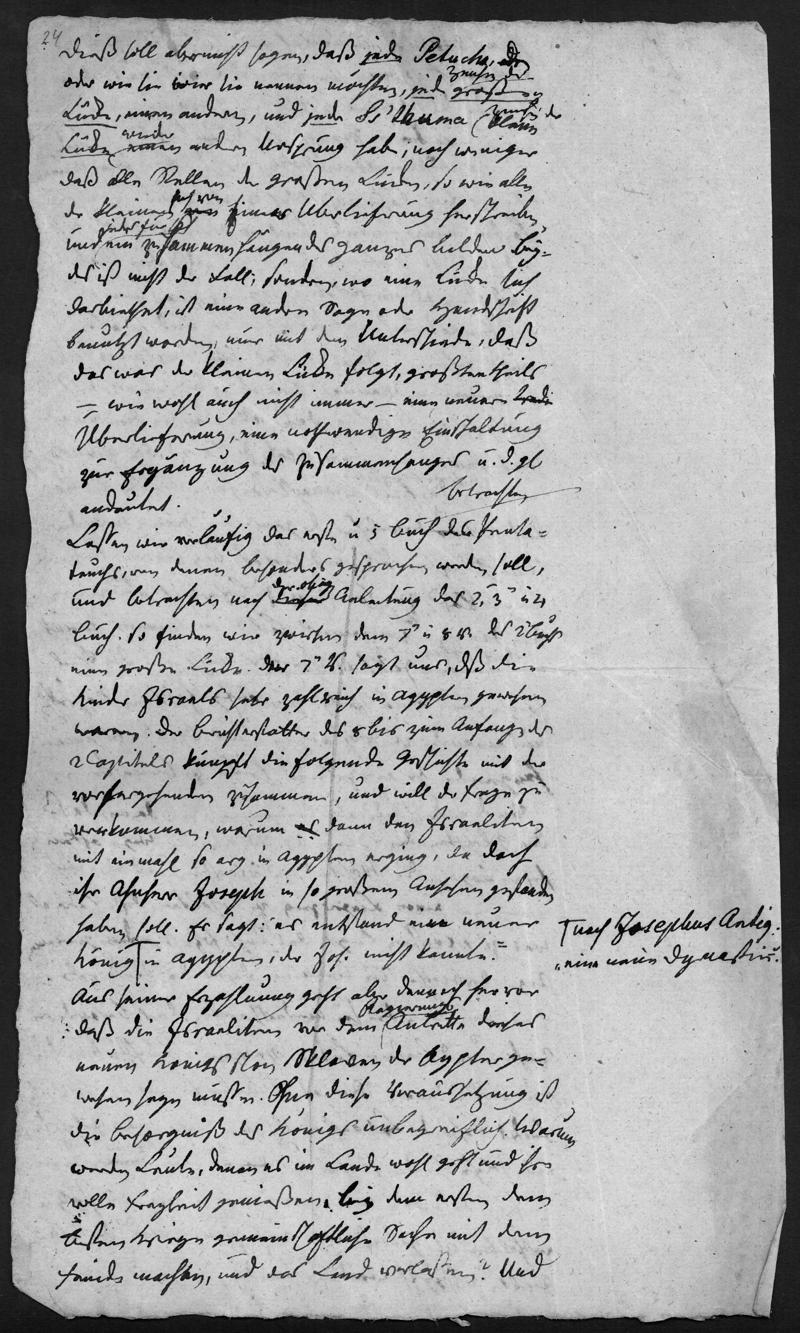 24
Dieß soll aber nicht sagen, daß jede Petucha, oder
oder wie sie wir sie nennen möchten, jede große
Lücke, einen andern, und jede Se'thuma (kleine
Lücke wieder einen andern Ursprung habe, noch weniger
daß alle Stellen der großen Lücken, so wie alle
der kleinen sich von einer Überlieferung herschreiben,
und ein zusammenhängendes ganzes bilden. Bey-
des ist nicht der Fall; sondern, wo eine Lücke sich
darbiethet, ist eine andere Sage oder Handschrift
benutzt worden, nur mit dem Unterschiede, daß
das was der kleinen Lücke folgt, großtentheils
— wie wohl auch nicht immer — eine neuere
Überlieferung, eine nothwendige Einschaltung
zur Ergänzung des Zusammenhanges u. d. gl
andeutet.
betrachten
Lassen wir vorläufig das erste u 5 Buch des Penta-
teuchs, von denen besonders gesprochen werden soll,
und betrachten nach der obigen Anleitung das 2, 3 u 4
Buch. So finden wir zwischen dem 7 u 8 V. des 2 Buchs
eine große Lücke. Der 7 V. sagt uns, dß die
Kinder Israels sehr zahlreich in Agypten gewesen
waren. Der Berichterstatter des 8 bis zum Anfange des
2 Capitels knüpft die folgende Geschichte mit der
vorhergehenden zusammen, und will der Frage zu
vorkommen, warum es denn den Israeliten
mit einmahl so arg in Agypten erging, da doch
ihr Ahnherr Joseph in so großem Ansehen gestanden
haben soll. Er sagt: es entstand ein neuer
König in Agypten, der Jos. nicht kannte."
nach Josephus Antiq.
„eine neue Dynastie".
Aus seiner Erzahlung geht aber dennoch hervor
daß die Israeliten vor dem Regierungs Antritte dieses
neuen Königs schon Sklaven der Agypter ge-
wesen seyn mussen. Ohne diese Voraussetzung ist
die Besorgniß des Königs unbegreiflich. Warum
werden Leute, denen es im Lande wohl geht und ihre
volle Freyheit genießen, bey dem ersten dem
besten Kriege gemeinschaftliche Sache mit dem
Feinde machen, und das Land verlassen? Und